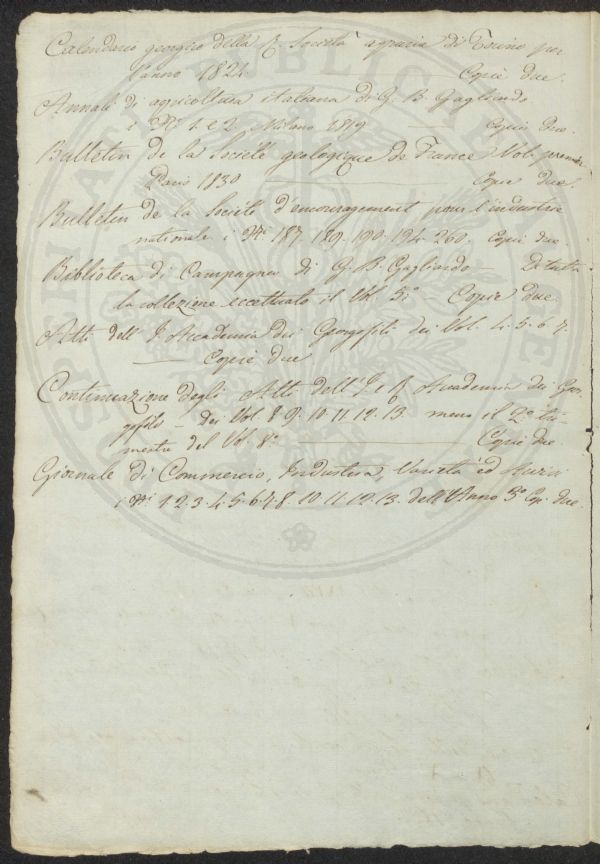 Calendario georgico della R. Società agraria di Torino per
l'anno 1824. Copie due.
Annali di agricoltura italiana di G. B. Gagliardo
i N.i 1. e 2. Milano 1819 Copie due.
Bulletin de la Société geologique de France Vol: premier
Paris 1830 Copie due.
Bulletin de la Société d'encouragement pour l'industrie
nationale i N.i 187. 189. 190. 194. 260. Copie due.
Biblioteca di Campagna di G. B. Gagliardo — Di tutta
la collezione eccettuato il Vol. 5.o — Copie due
Atti dell' I. Accademia dei Georgofili dei Vol. 4. 5. 6. 7.
— Copie due
Continuazione degli Atti dell' I. e R. Accademia dei Geor-
gofili — Dei Vol. 8. 9. 10. 11. 12. 13. meno il 2.o tri-
mestre del Vol. 8.o Copie due.
Giornale di Commercio, Industria, Varietà ed Avvisi
i N.i 1. 2. 3. 4. 5. 6. 7. 8. 10. 11. 12. 13. dell'Anno 3.o Cop. due.